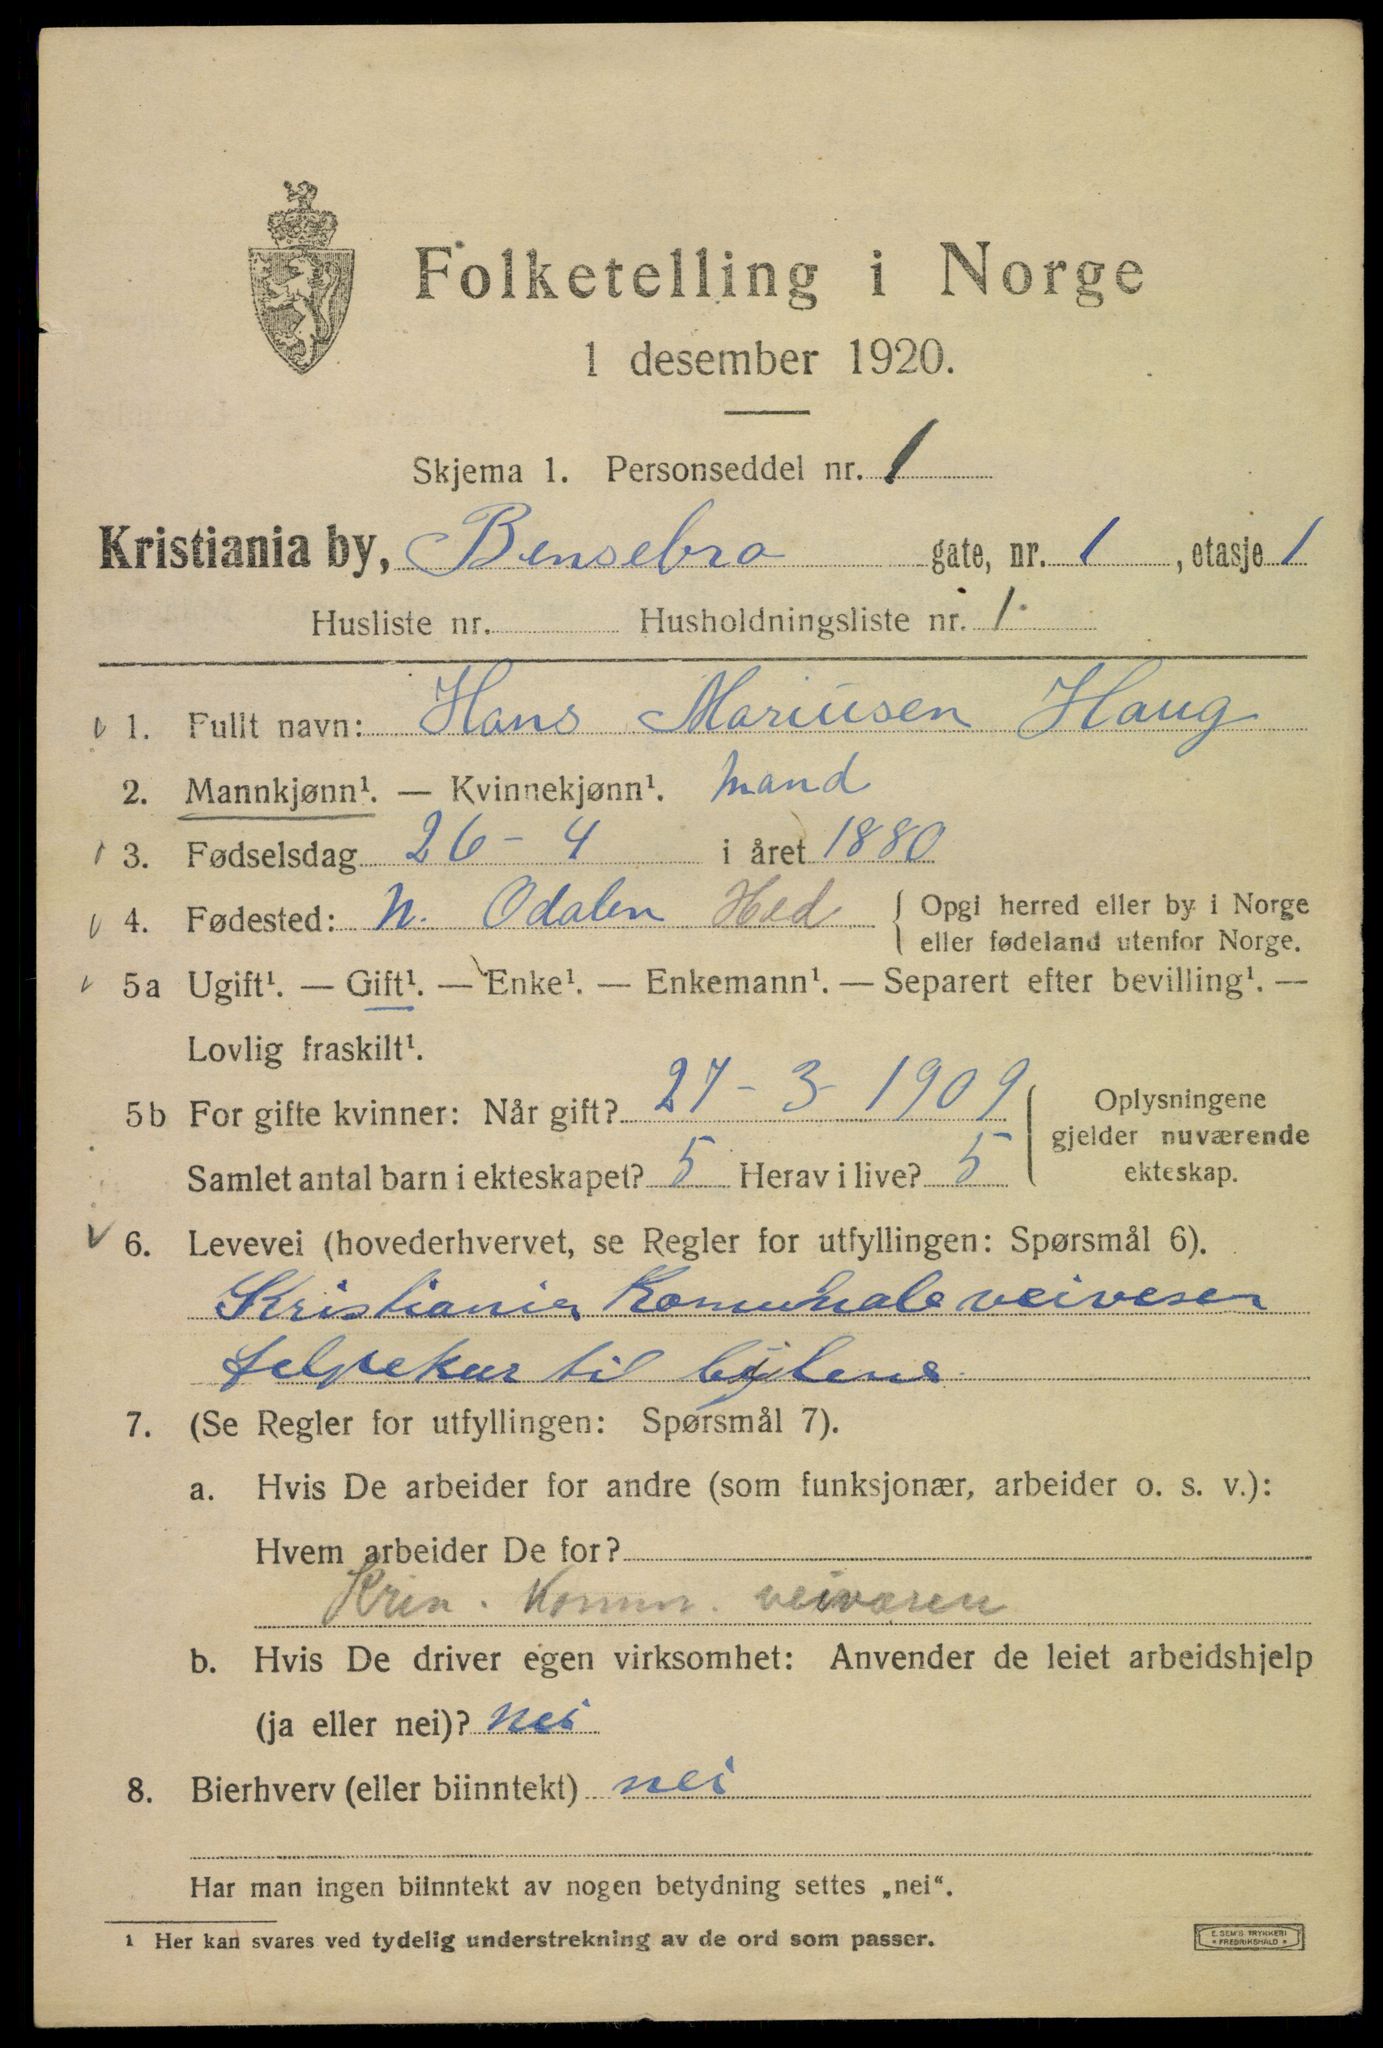 Folketelling i Norge
1 desember 1920.
Skjema 1. Personseddel nr. 1
Kristiania by, Bensebro gate, nr. 1, etasje 1
Husliste nr. Husholdningsliste nr. 1
1. Fullt navn: Hans Mariusen Haug
2. Mannkjønn¹. — Kvinnekjønn¹. Mand
3. Fødselsdag 26 - 4 i året 1880
4. Fødested: N. Odalen Hed { Opgi herred eller by i Norge
eller fødeland utenfor Norge.
5a Ugift¹. — Gift¹. — Enke¹. — Enkemann¹. — Separert efter bevilling¹. —
Lovlig fraskilt¹.
5b For gifte kvinner: Når gift? 27 - 3 - 1909
Samlet antal barn i ekteskapet? 5 Herav i live? 5
Oplysningene
gjelder nuværende
ekteskap.
6. Levevei (hovederhvervet, se Regler for utfyllingen: Spørsmål 6).
Kristiania Komunale veivesen
til
7. (Se Regler for utfyllingen: Spørsmål 7).
a. Hvis De arbeider for andre (som funksjonær, arbeider o. s. v.):
Hvem arbeider De for?
Kria. Komm. veivæsen
b. Hvis De driver egen virksomhet: Anvender de leiet arbeidshjelp
(ja eller nei)? Nei
8. Bierhverv (eller biinntekt) nei
Har man ingen biinntekt av nogen betydning settes „nei“.
¹ Her kan svares ved tydelig understrekning av de ord som passer.
E. SEM'S TRYKKERI
* FREDRIKSHALD *